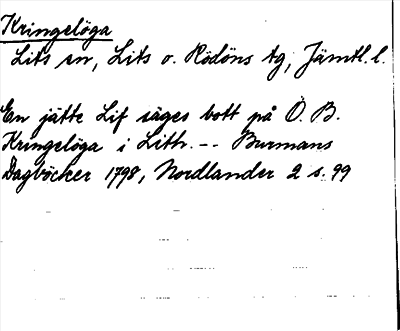 Kringelöga
Lits sn, Lits o. Rödöns tg, Jämtl. l.
En jätte Lif säges bott på Ö. B.
Kringelöga i Lith. -- Burmans
Dagböcker 1798, Nordlander 2 s. 99